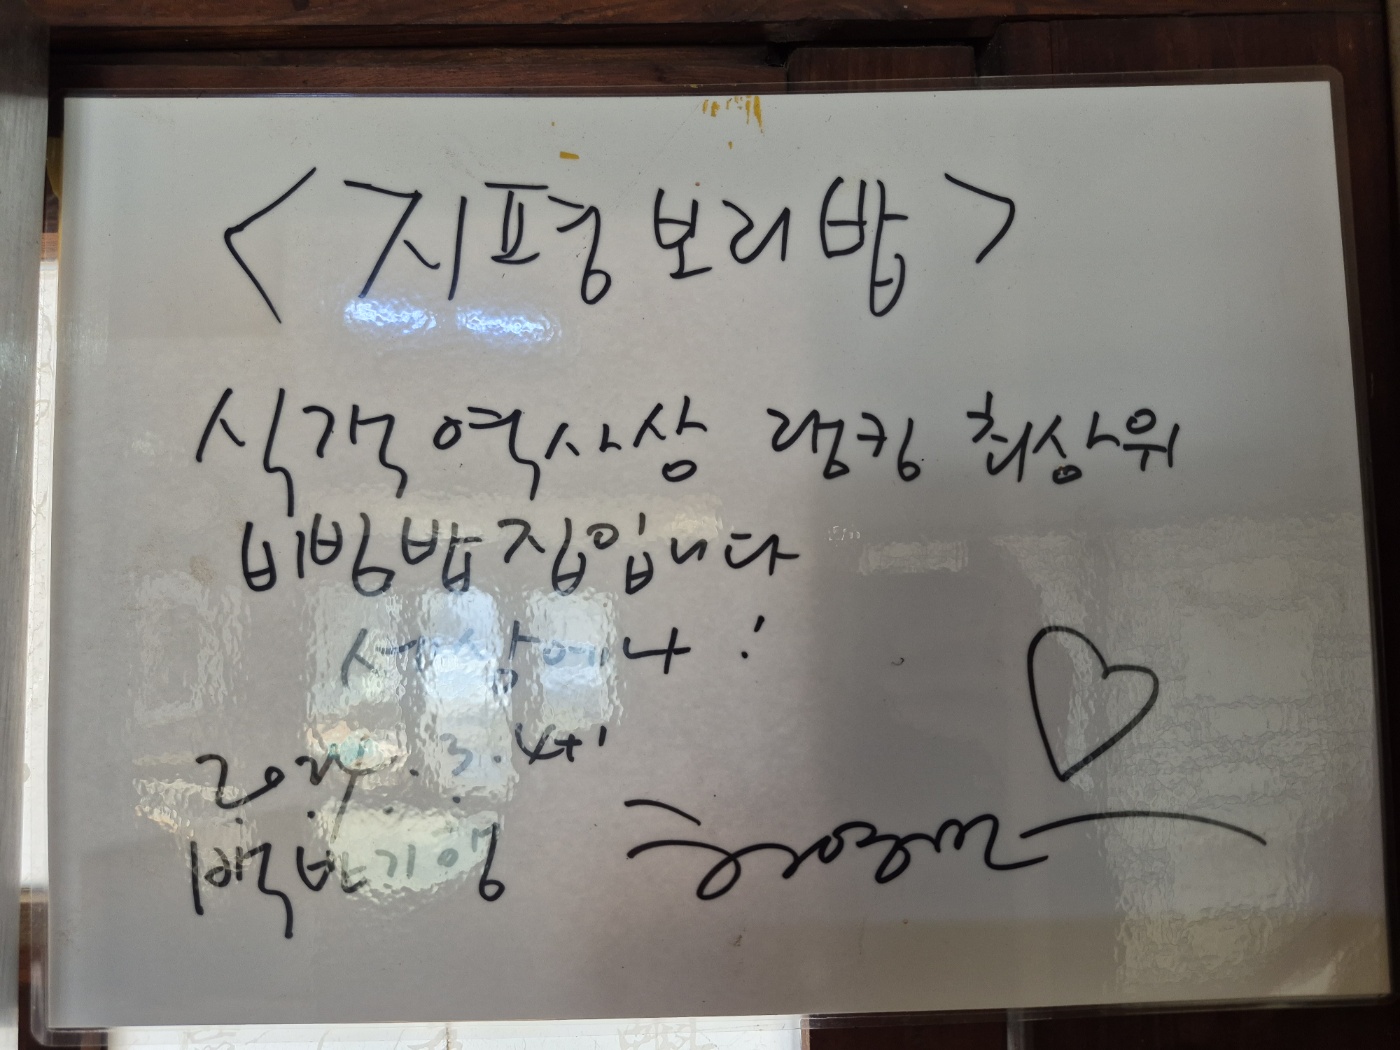 <지평보리밥>
식객 역사상 랭킹 최상위
비빔밥 집입니다
세상에나!
백반기행 허영만